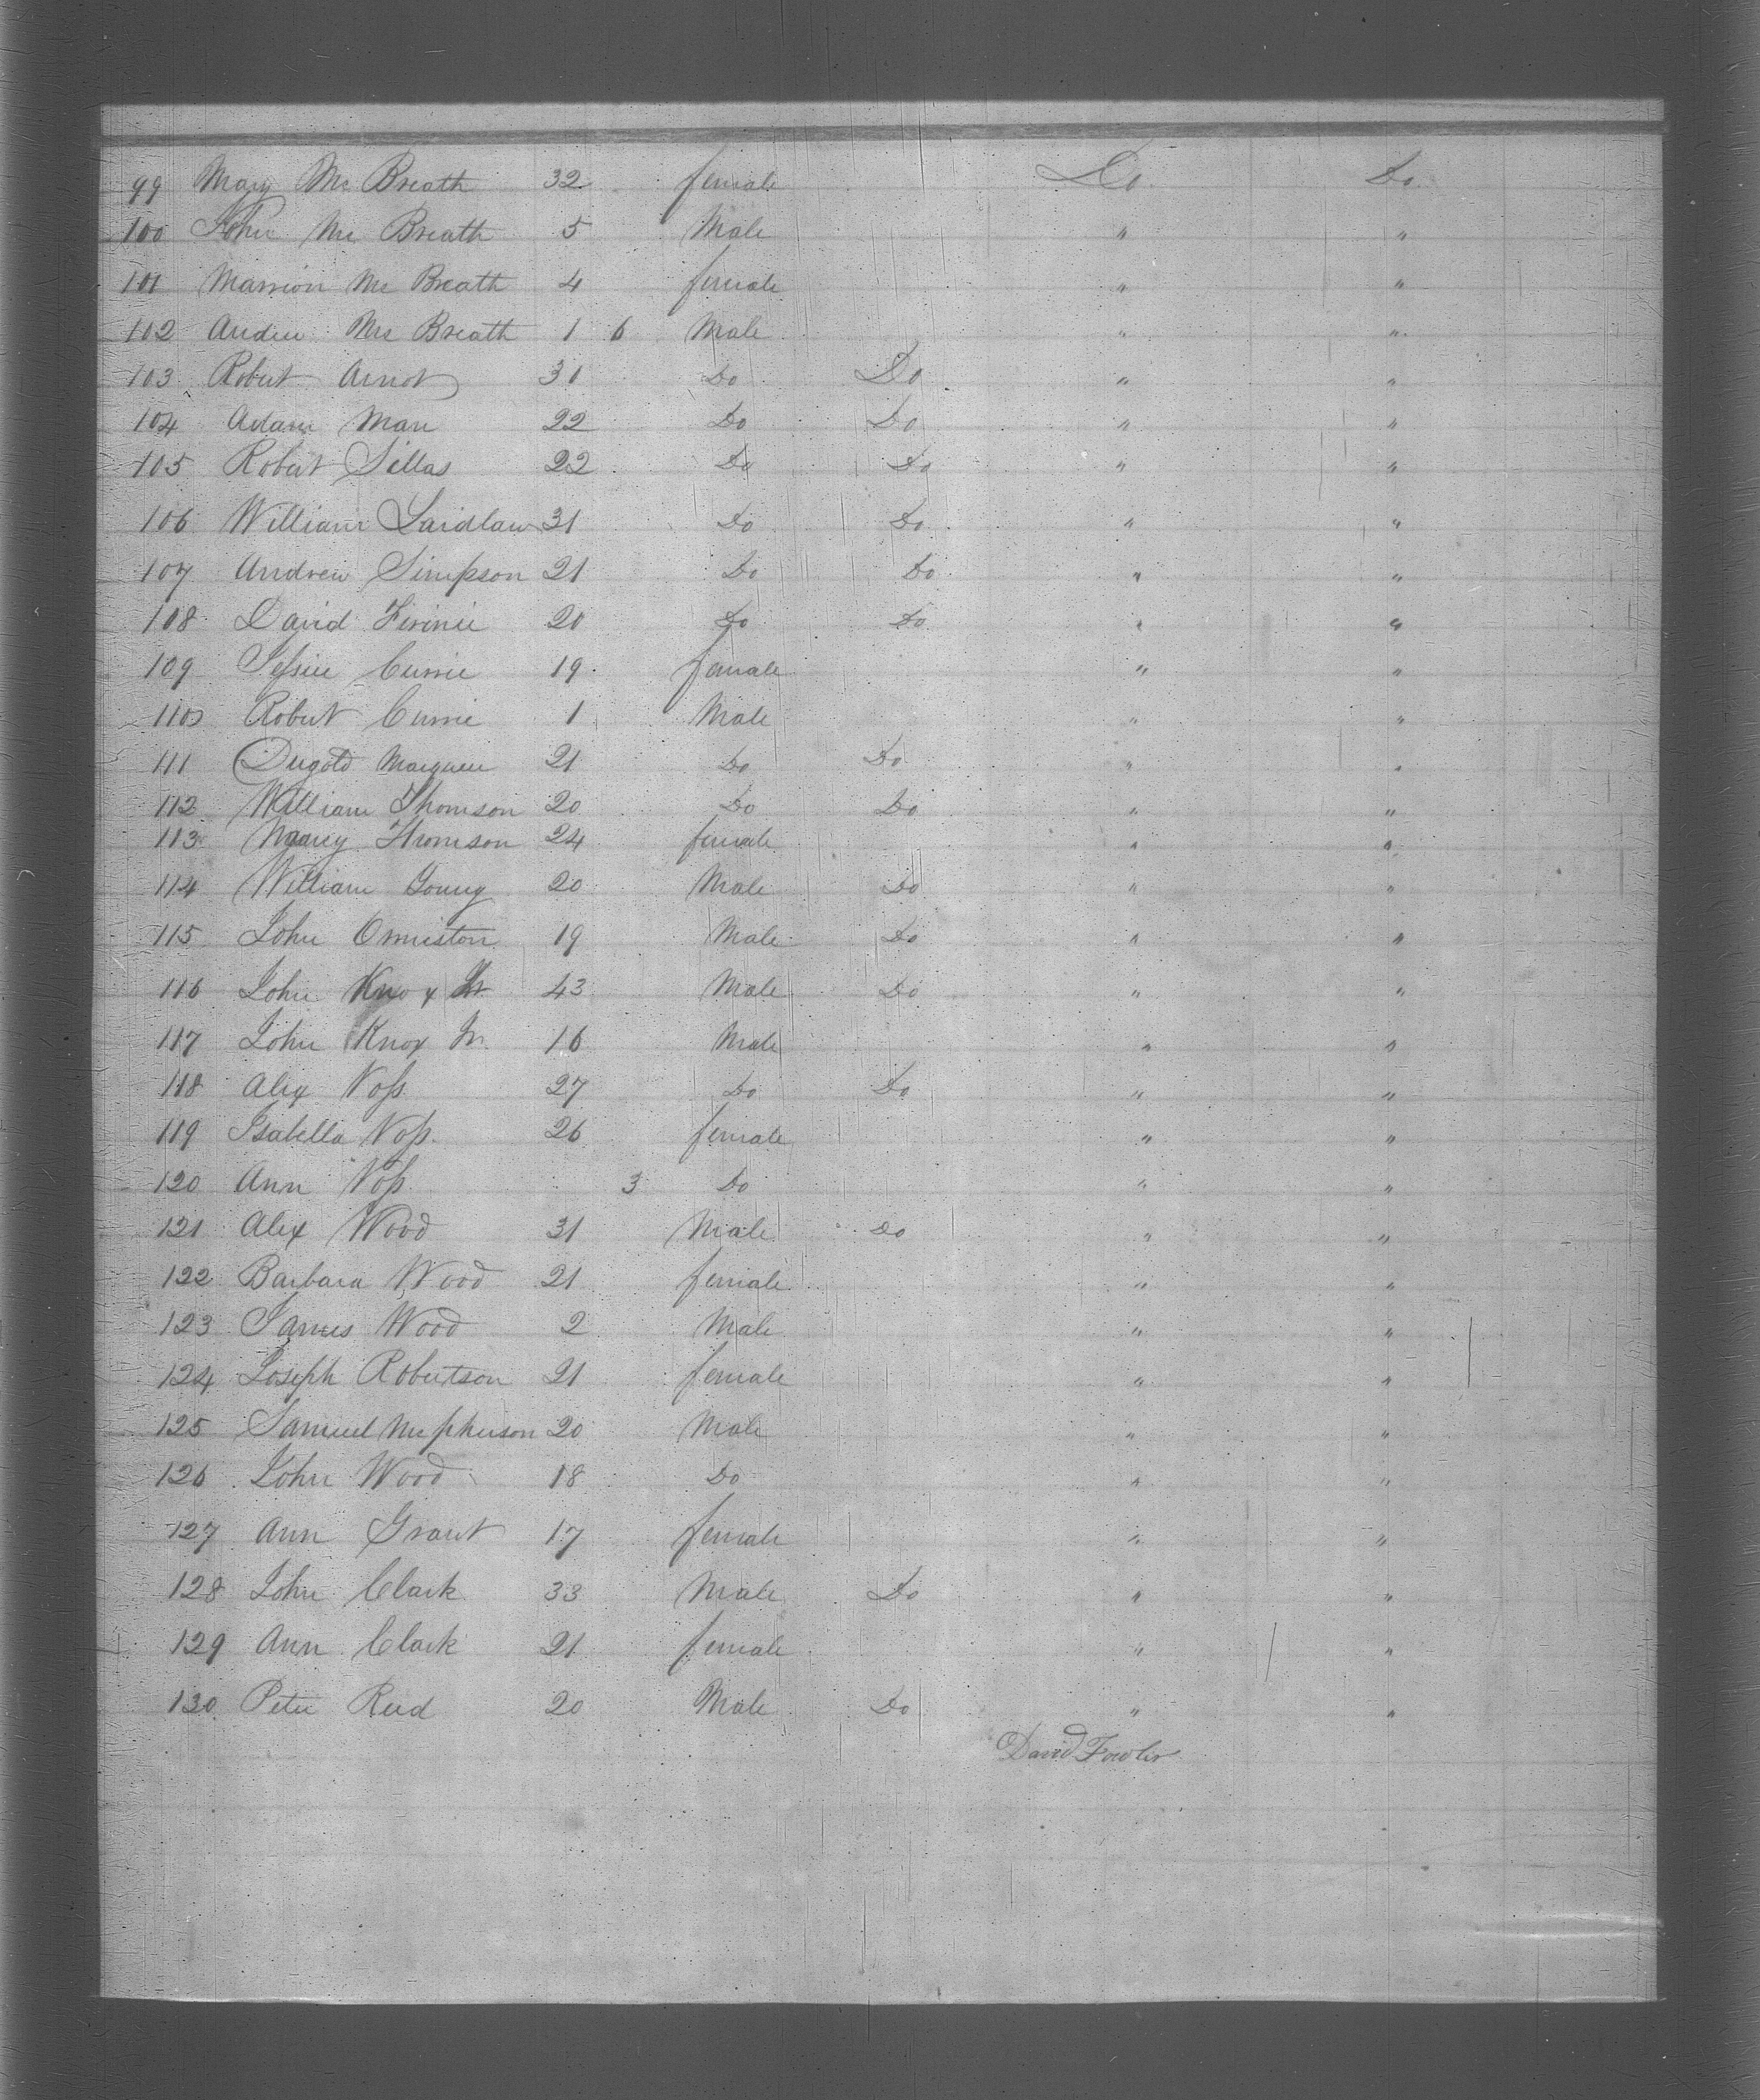 99 Mary Mc Breath 32 female Do Do
100 John Mc Breath 5 Male " "
101 Marrion Mc Breath 4 female " "
102 Andew Mc Breath 1 6 Male " "
103 Robert Arnot 30 Do Do " "
104 Adam Man 22 Do Do " "
105 Robert Sillas 22 Do Do " "
106 William Laidlaw 31 Do Do " "
107 Andrew Simpson 21 Do Do " "
108 David 20 Do Do " "
109 Jessie Currie 19 female " "
110 Robert Currie 1 Male " "
111 Dugold 21 Do Do " "
112 William Thomson 20 Do Do " "
113 Thomson 24 female " "
114 William Young 20 Male Do " "
115 John Ormiston 19 Male Do " "
116 John Knox Sr 43 Male Do " "
117 John Knox Jr. 16 Male " "
118 Alex Voss 27 Do Do " "
119 Isabella Voss 26 female " "
120 Ann Voss 3 Do " "
121 Alex Wood 31 Male Do " "
122 Barbara Wood 21 female " "
123 James Wood 2 Male " "
124 Joseph Robertson 21 female " "
125 Samuel Mcpherson 20 Male " "
126 John Wood 18 Do " "
127 Ann Grant 17 female " "
128 John Clark 33 Male Do " "
129 Ann Clark 21 female " "
130 Peter Reid 20 Male Do " "
David Fowler